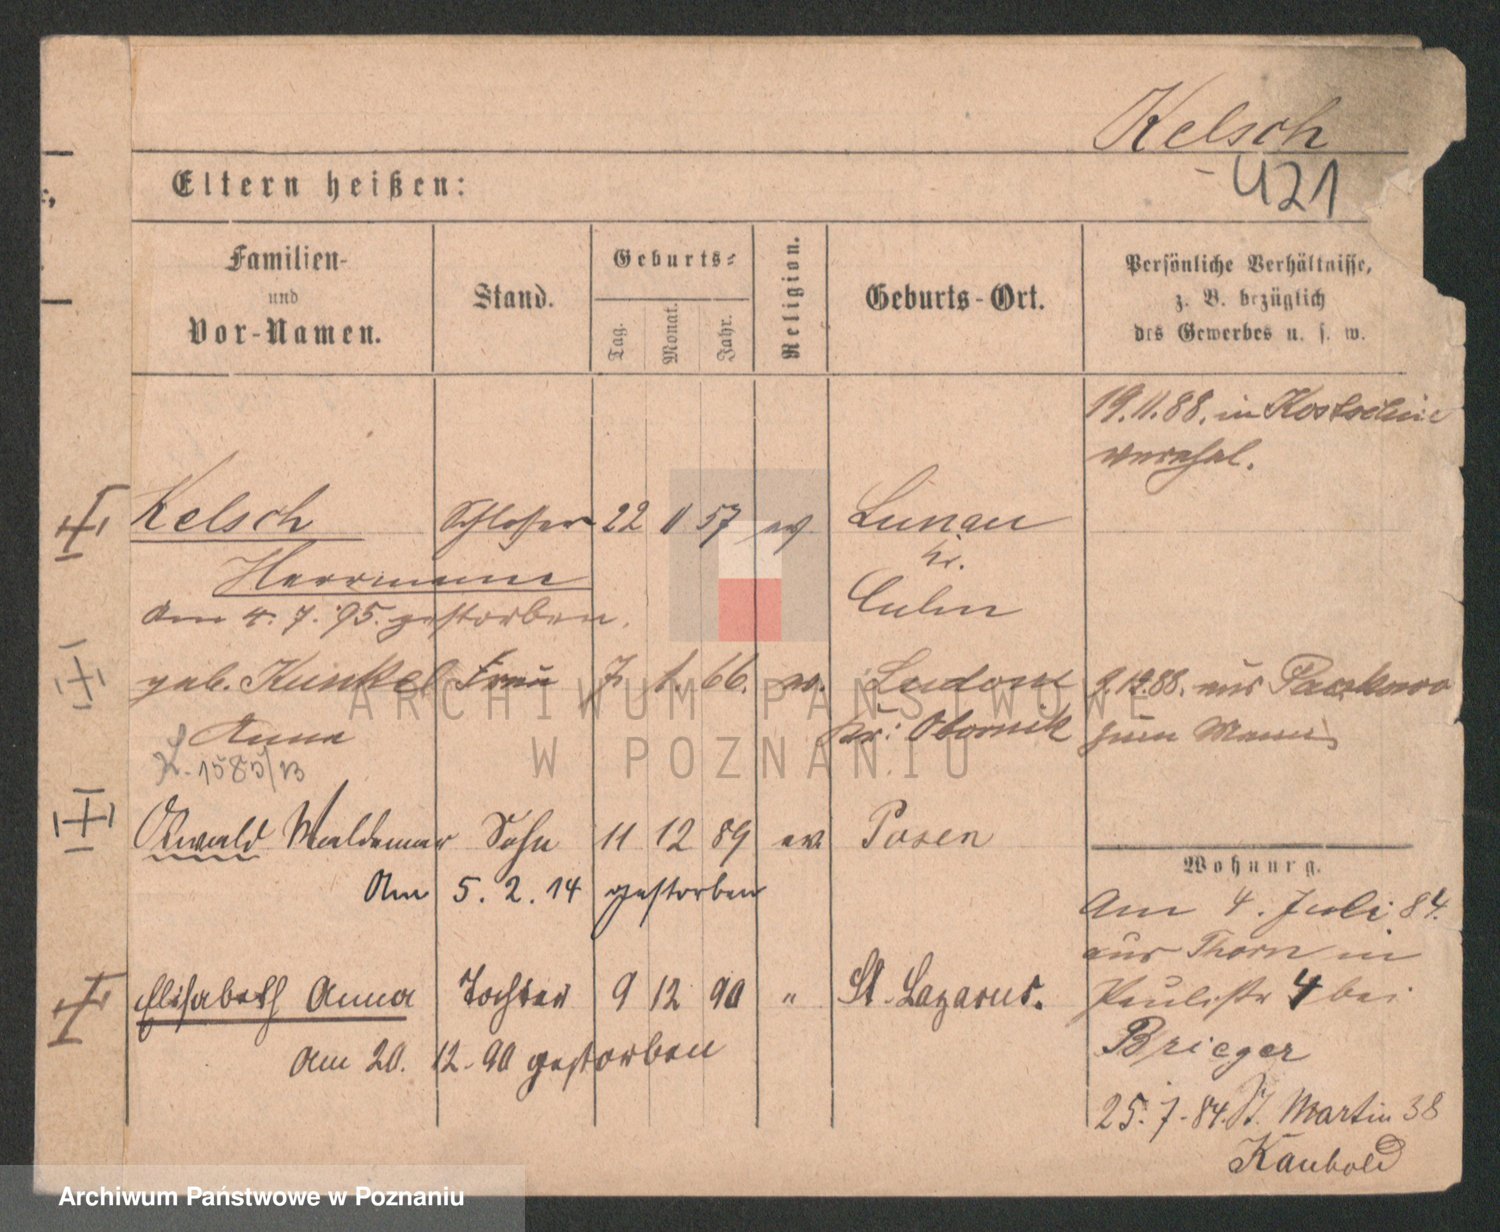 Kelsch
421
Eltern heißen:
Familien-
und
Vor-Namen.
Stand.
Geburts-
Tag.
Monat.
Jahr.
Religion.
Geburts-Ort.
Persönliche Verhältnisse,
z. B. bezüglich
des Gewerbes u. s. w.
19.11.88. in Kostschin
verehel.
Kelsch Schlosser 22 11 57 ev Lunau
Herrmann Kr.
Culm
Am 4. 7. 95. gestorben.
geb. Kunkel Frau 7. 1. 66. ev. Ludom 9.12.88. aus Paczkowo
Anna Kr: Obornik zum Mann
Oswald Waldemar Sohn 11 12 89 ev Posen
Am 5. 2. 14 gestorben
Elisabeth Anna Tochter 9 12 90 " St. Lazarus.
Am 20. 12. 90 gestorben
Wohnung.
Am 4. Juli 84.
aus Thorn in
Paulistr 4 bei
Brieger
25. 7. 84. St. Martin 38
Kaubold
ARCHIWUM PAŃSTWOWE
W POZNANIU
Archiwum Państwowe w Poznaniu